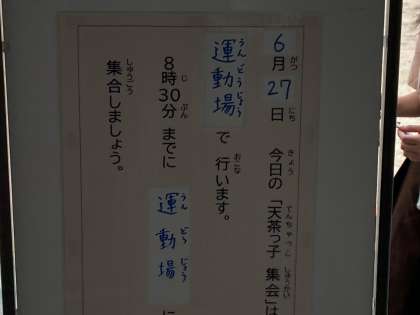 6月27日 今日の「天茶っ子 集会」は
運動場で 行います。
8時30分 までに 運動場 に
集合しましょう。